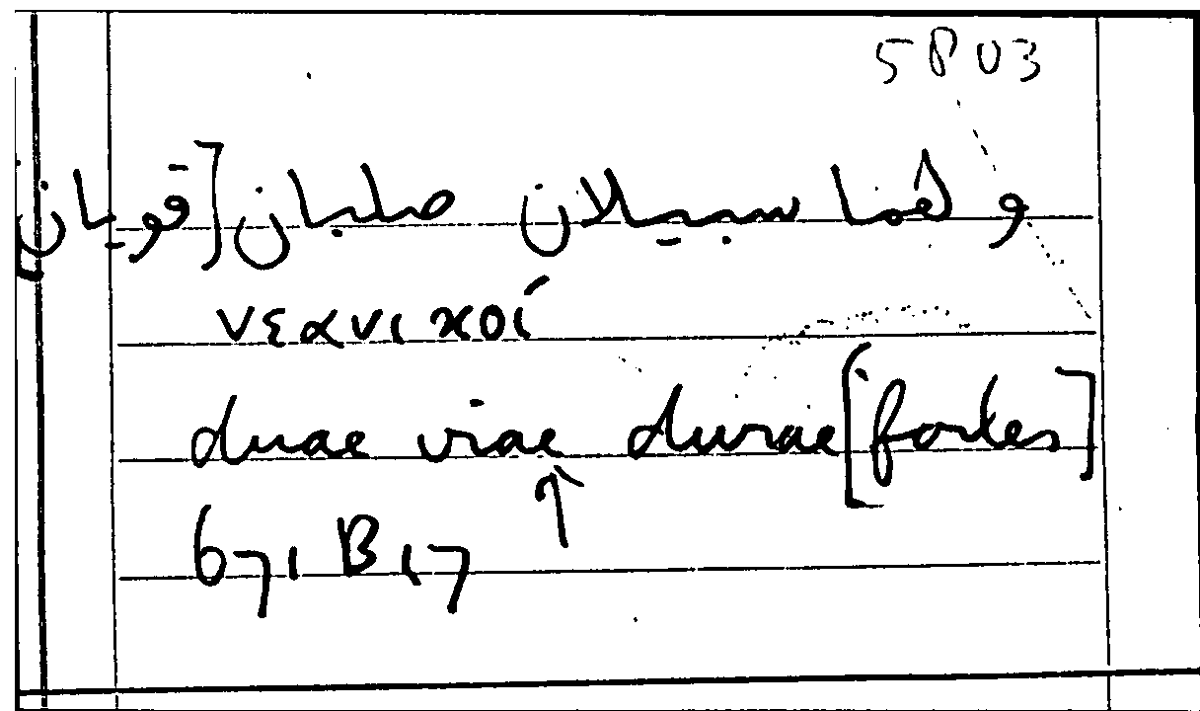 5803
ولهما سبيلان صلبان [قويان]
νεανικοί
duae viae durae [fortes]
↑
671 B 17